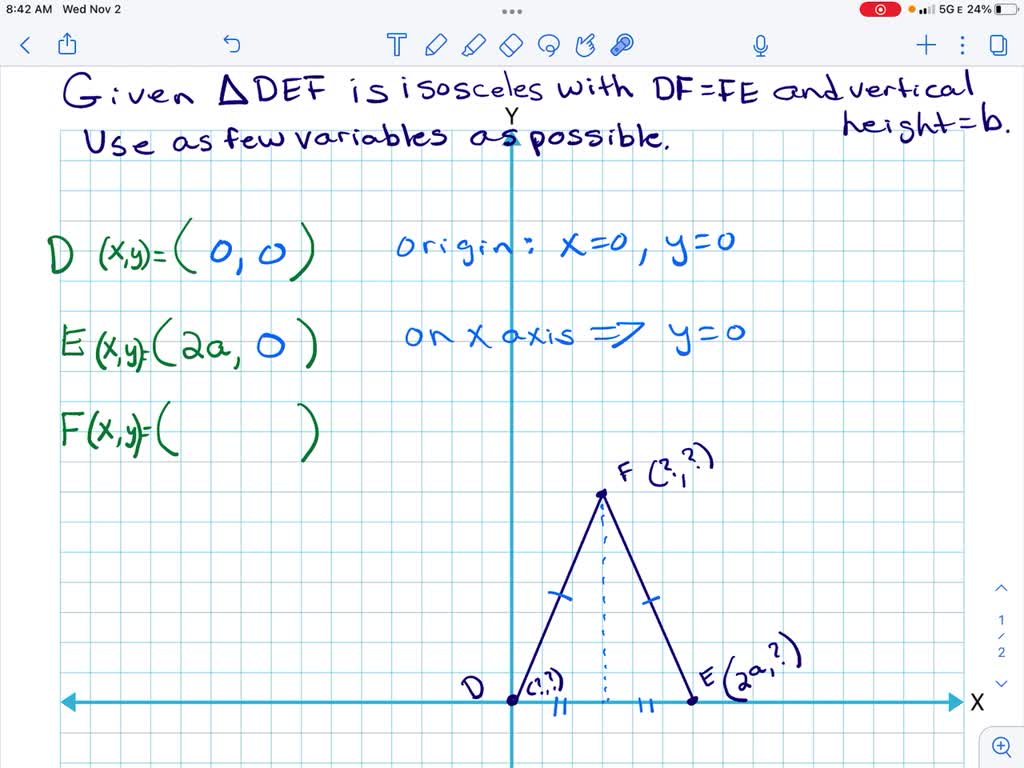 8:42 AM Wed Nov 2
5G E 24%
Given ΔDEF is isosceles with DF=FE and vertical
height=b.
Y
Use as few variables as possible.
D (x,y)=(0,0) origin: x=0, y=0
E(x,y)=(2a,0) on x axis => y=0
F(x,y)=( )
F (?,?)
D (?,?) E(2a,?)
X
1
/
2